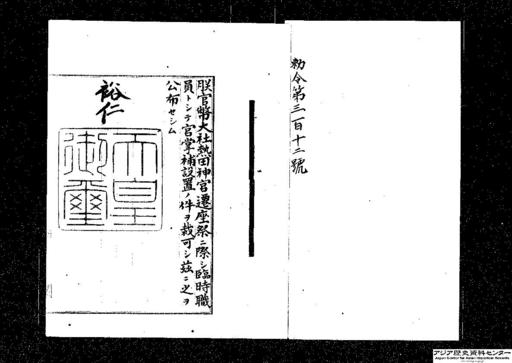 勅令第三百十二號
朕官幣大社熱田神宮遷座祭ニ際シ臨時職
員トシテ宮掌補設置ノ件ヲ裁可シ茲ニ之ヲ
公布セシム
裕仁
天皇
御璽
アジア歴史資料センター
Japan Center for Asian Historical Records